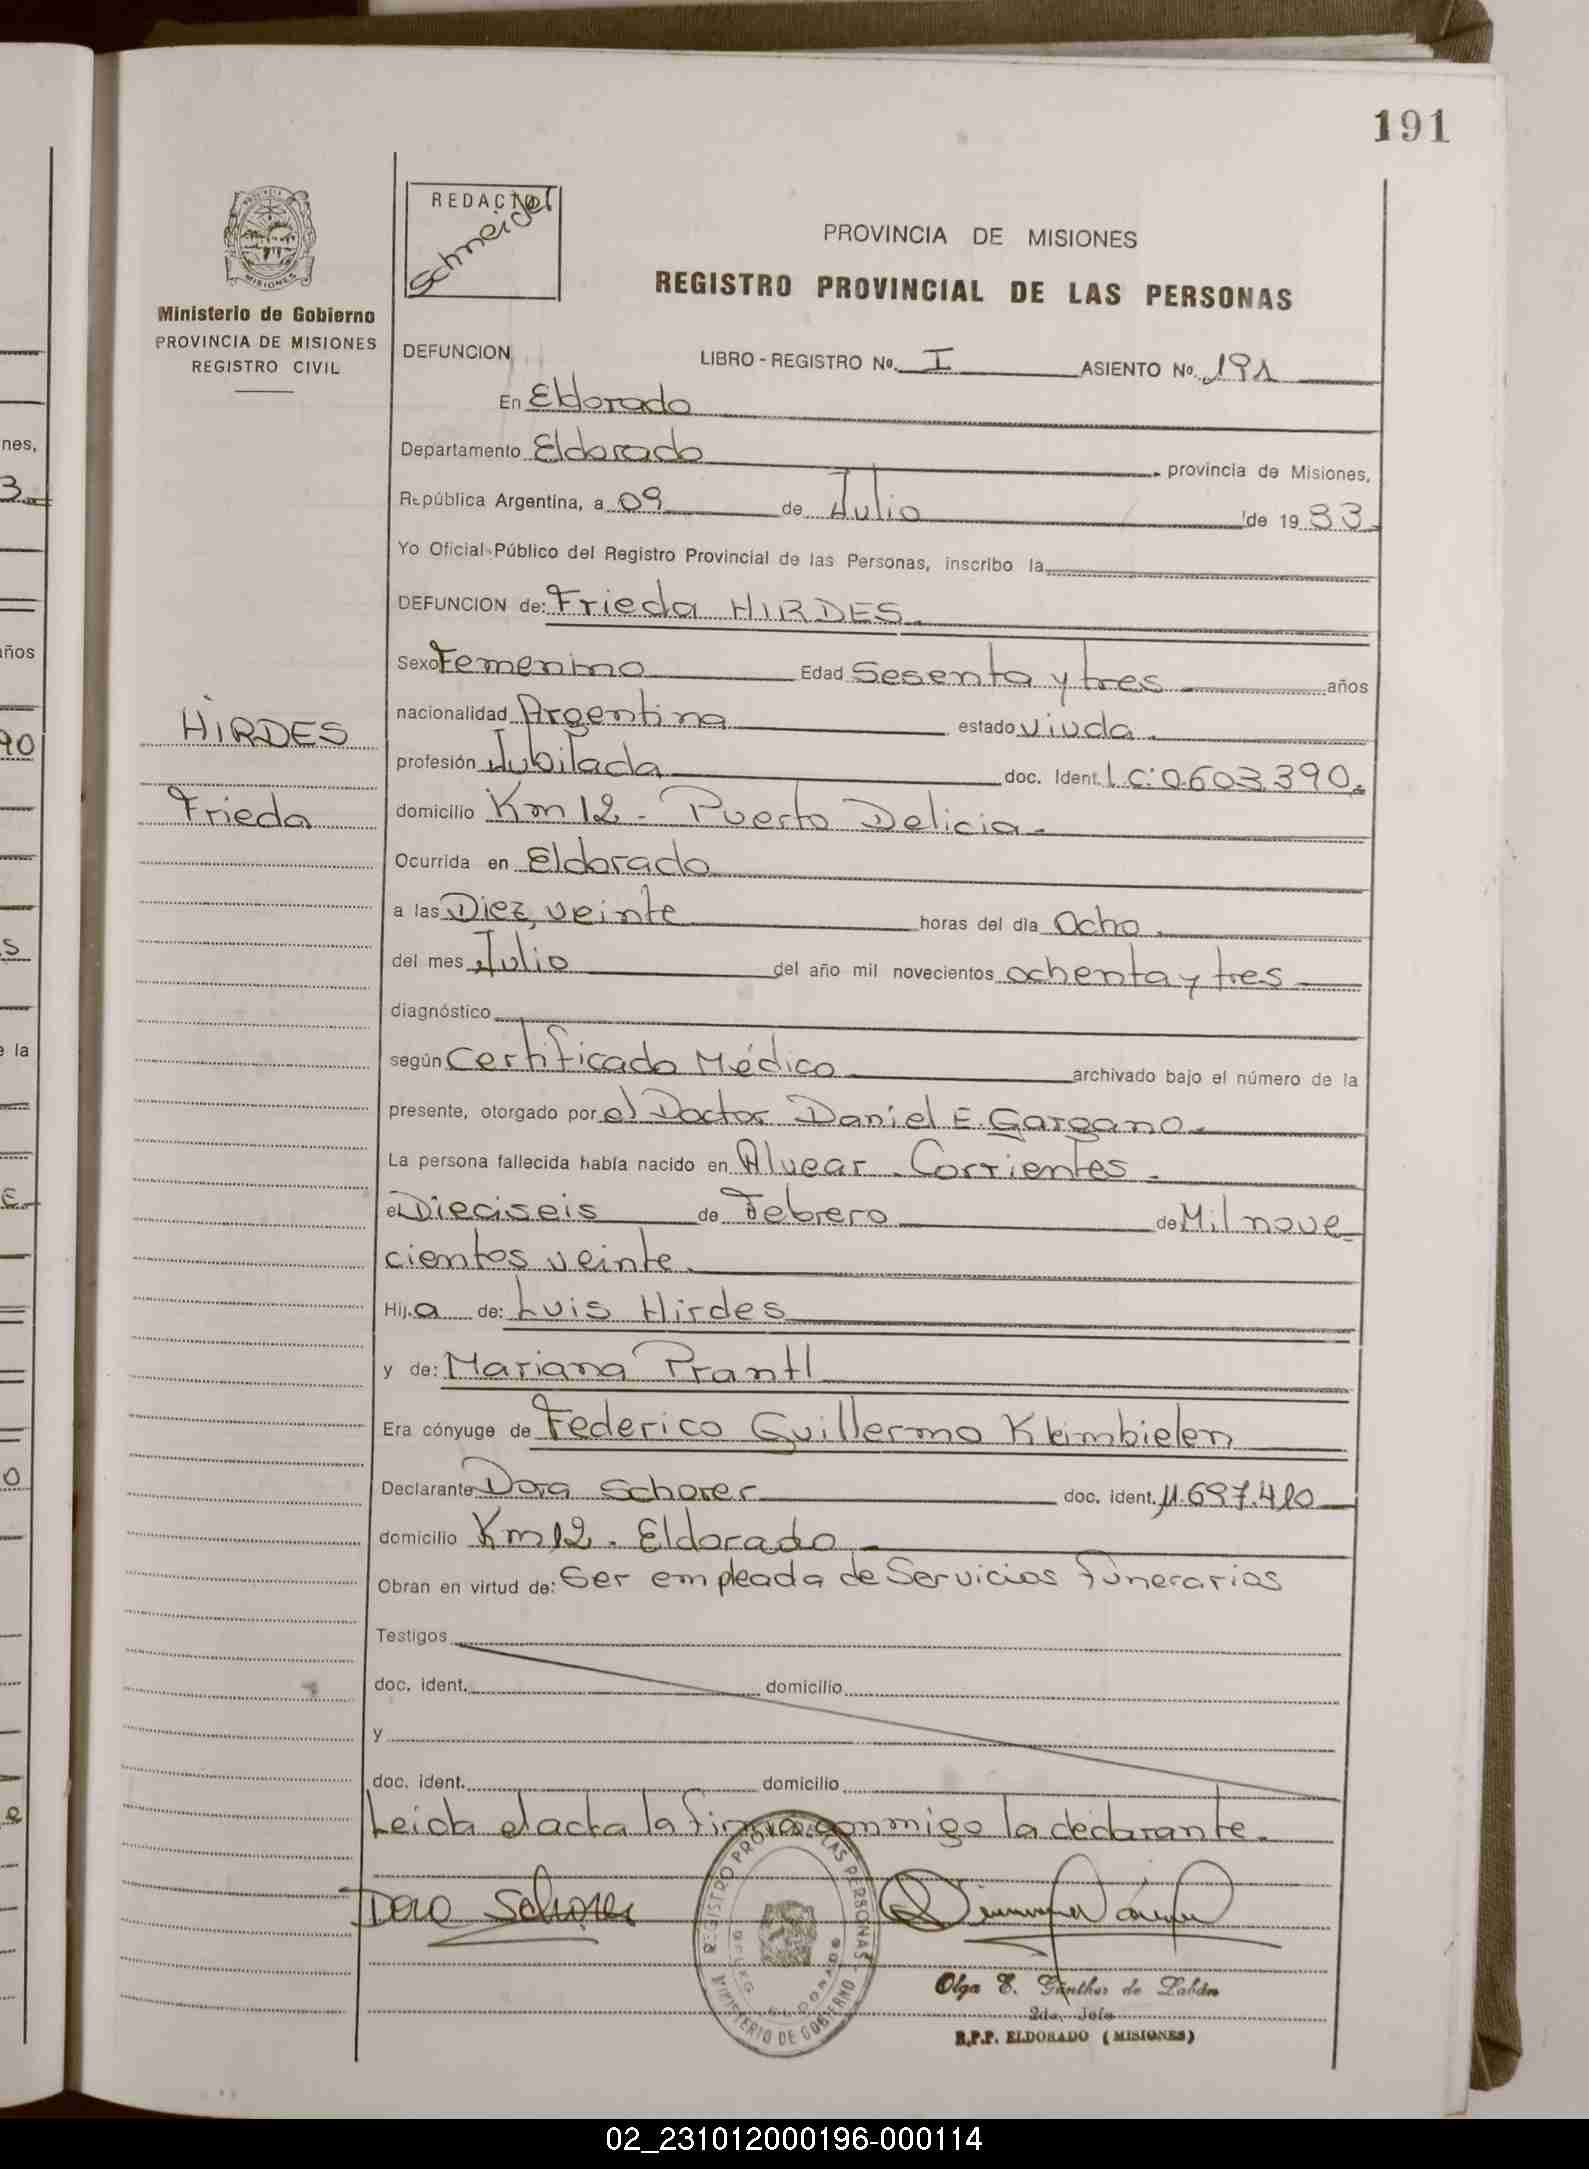 191
REDACTOR
Schneidel
PROVINCIA DE MISIONES
REGISTRO PROVINCIAL DE LAS PERSONAS
MISIONES
Ministerio de Gobierno
PROVINCIA DE MISIONES
REGISTRO CIVIL
DEFUNCION LIBRO - REGISTRO No. I ASIENTO No. 191
En Eldorado
Departamento Eldorado provincia de Misiones,
República Argentina, a 09 de Julio de 19 83.
Yo Oficial Público del Registro Provincial de las Personas, inscribo la
DEFUNCION de: Frieda HIRDES.
Sexo Femenino Edad Sesenta y tres años
nacionalidad Argentina estado viuda.
profesión Jubilada doc. Ident. L.C: 0.603.390.
domicilio Km 12 - Puerto Delicia.
Ocurrida en Eldorado
a las Diez, veinte horas del día Ocho.
del mes Julio del año mil novecientos ochenta y tres
diagnóstico
según Certificado Médico archivado bajo el número de la
presente, otorgado por el Doctor Daniel E. Gargano.
La persona fallecida había nacido en Alvear - Corrientes.
el Dieciseis de Febrero de Mil nove
cientos veinte.
Hij.a de: Luis Hirdes
y de: Mariana Prantl
Era cónyuge de Federico Guillermo Kleimbielen
Declarante Dora Schorer doc. ident. 11.697.410
domicilio Km 12. Eldorado
Obran en virtud de: Ser empleada de Servicios Funerarios
Testigos
doc. ident. domicilio
y
doc. ident. domicilio
Leida el acta la firma conmigo la declarante.
HIRDES
Frieda
Dora Schorer
REGISTRO PROV. DE LAS PERSONAS
MINISTERIO DE GOBIERNO
ELDORADO
Olga E. Günther de
2da. Jefe
R.P.P. ELDORADO (MISIONES)
nes,
3
años
90
s
e la
E.
0
e
02_231012000196-000114